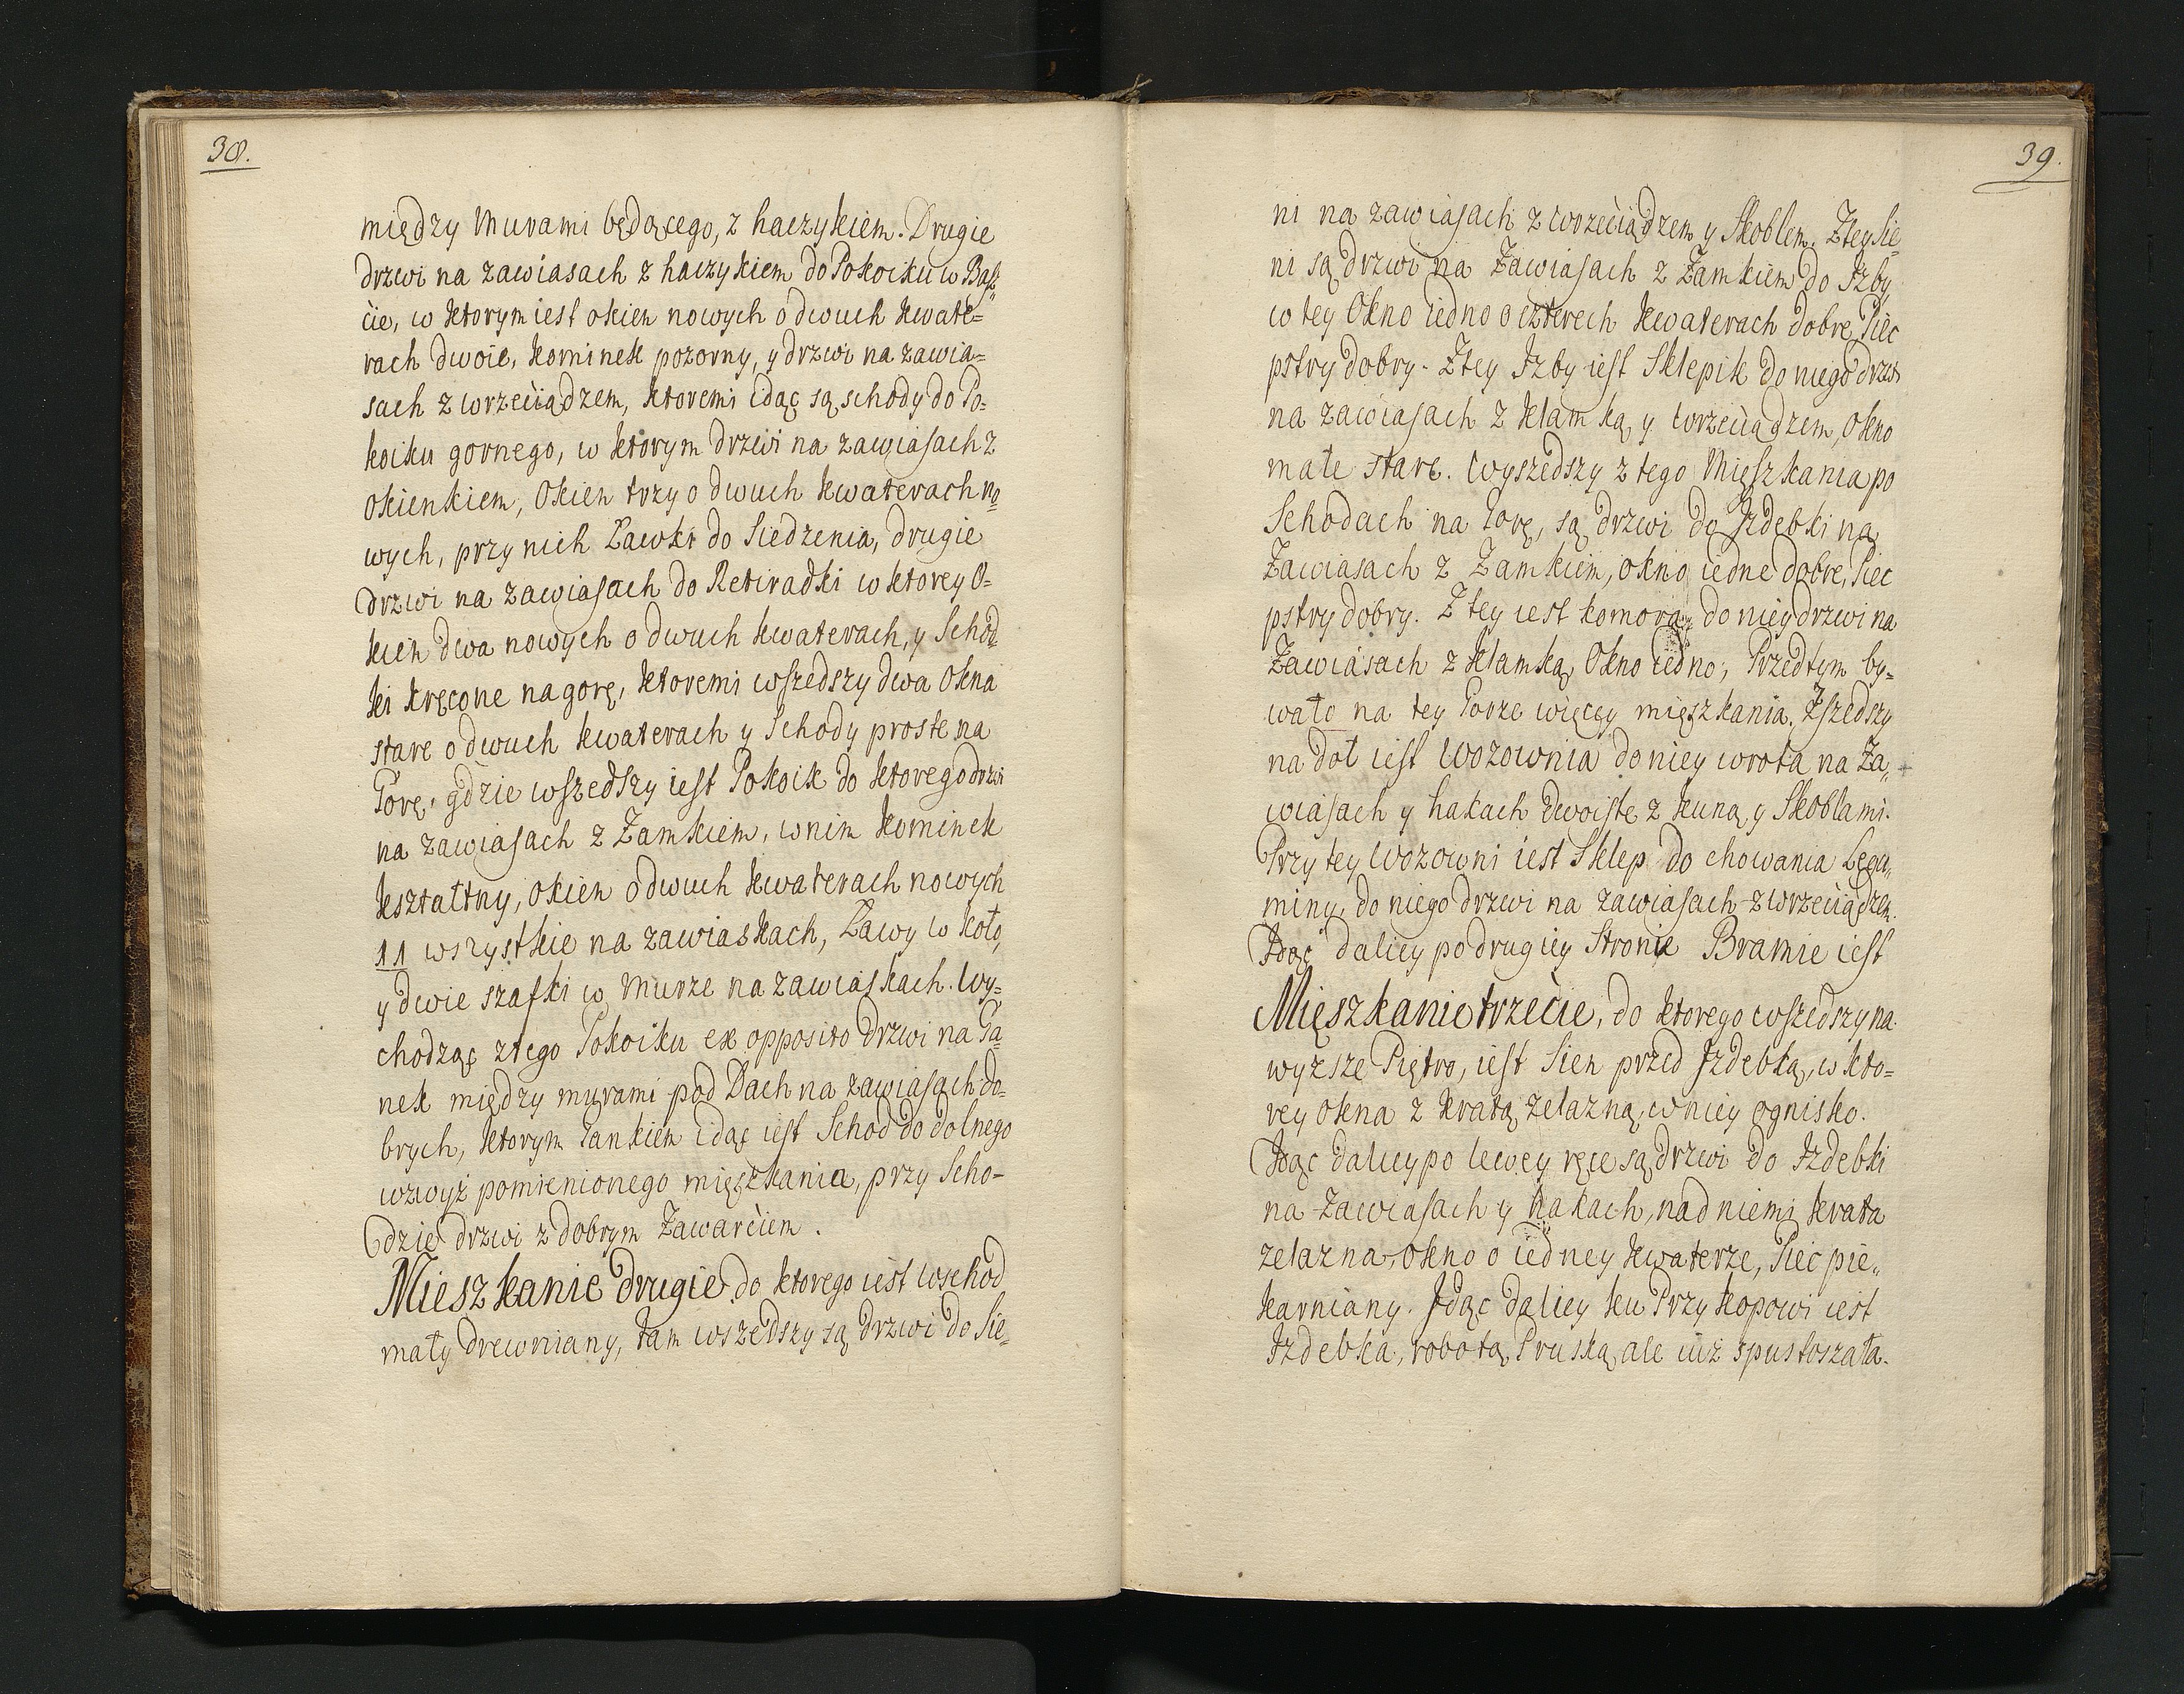 38.
między Murami będącego, z haczykiem. Drugie
drzwi na zawiasach z haczykiem do Pokoiku w Basz„
cie, w ktorym iest okien nowych o dwuch kwate=
rach dwoie, kominek pozorny, y drzwi na zawia=
sach z wrzeciądzem, ktoremi idąc są schody do Po=
koiku gornego, w ktorym drzwi na zawiasach z
okienkiem, Okien trzy o dwuch kwaterach no
wych, przy nich Ławki do Siedzenia, drugie
drzwi na zawiasach do Retiradki w ktorey O=
kien dwa nowych o dwuch kwaterach, y Schod
ki kręcone na gorę, ktoremi wszedszy dwa Okna
stare o dwuch kwaterach y Schody proste na
Gorę, gdzie wszedszy iest Pokoik do ktorego drzwi
na zawiasach z Zamkiem, w nim kominek
kształtny, okien o dwuch kwaterach nowych
11 wszystkie na zawiaskach, Ławy w koło,
y dwie szafki w Murze na zawiaskach. Wy=
chodząc z tego Pokoiku ex opposito Drzwi na Ga
nek między murami pod Dach na zawiasach do=
brych, ktorym Gankiem idąc iest Schod do dolnego
wzwyż pomienionego mięszkania, przy Scho=
dzie drzwi z dobrym Zawarciem.
Mieszkanie drugie do ktorego iest wschod
mały drewniany, tam wszedszy są drzwi do Sie=
39.
ni na zawiasach z wrzeciądzem y Skoblem. Z tey Sie
ni są drzwi na Zawiasach z Zamkiem do Izby,
w tey Okno iedno o czterech kwaterach dobre, Piec
pstry dobry. Z tey Izby iest Sklepik do niego drzwi
na zawiasach z klamką y wrzeciądzem, Okno
małe stare. Wyszedszy z tego Mięszkania po
Schodach na Gorę, są drzwi do Izdebki na
Zawiasach z Zamkiem, okno iedne dobre, Piec
pstry dobry. Z tey iest komora, do niey drzwi na
Zawiasach z klamką, Okno iedno, Przedtym by=
wało na tey Gorze więcey mięszkania. Zszedszy
na doł iest Wozownia do niey wrota na Za„
wiasach y hakach dwoiste z kuną y Skoblami.
Przy tey Wozowni iest Sklep do chowania Legu„
miny, do niego drzwi na zawiasach z wrzeciądzem.
Idąc daliey po drugiey Stronie Bramie iest
Mięszkanie trzecie, do ktorego wszedszy na
wyzsze Piętro, iest Sien przed Izdebką, w kto=
rey okna z kratą zelazną, w niey ognisko.
Idąc daliey po lewey ręce są drzwi do Izdebki
na Zawiasach y hakach, nad niemi krata
zelazna, okno o iedney kwaterze, Piec pie„
karniany. Idąc daliey ku Przykopowi iest
Izdebka, robotą Pruską, ale iuż spustoszała.